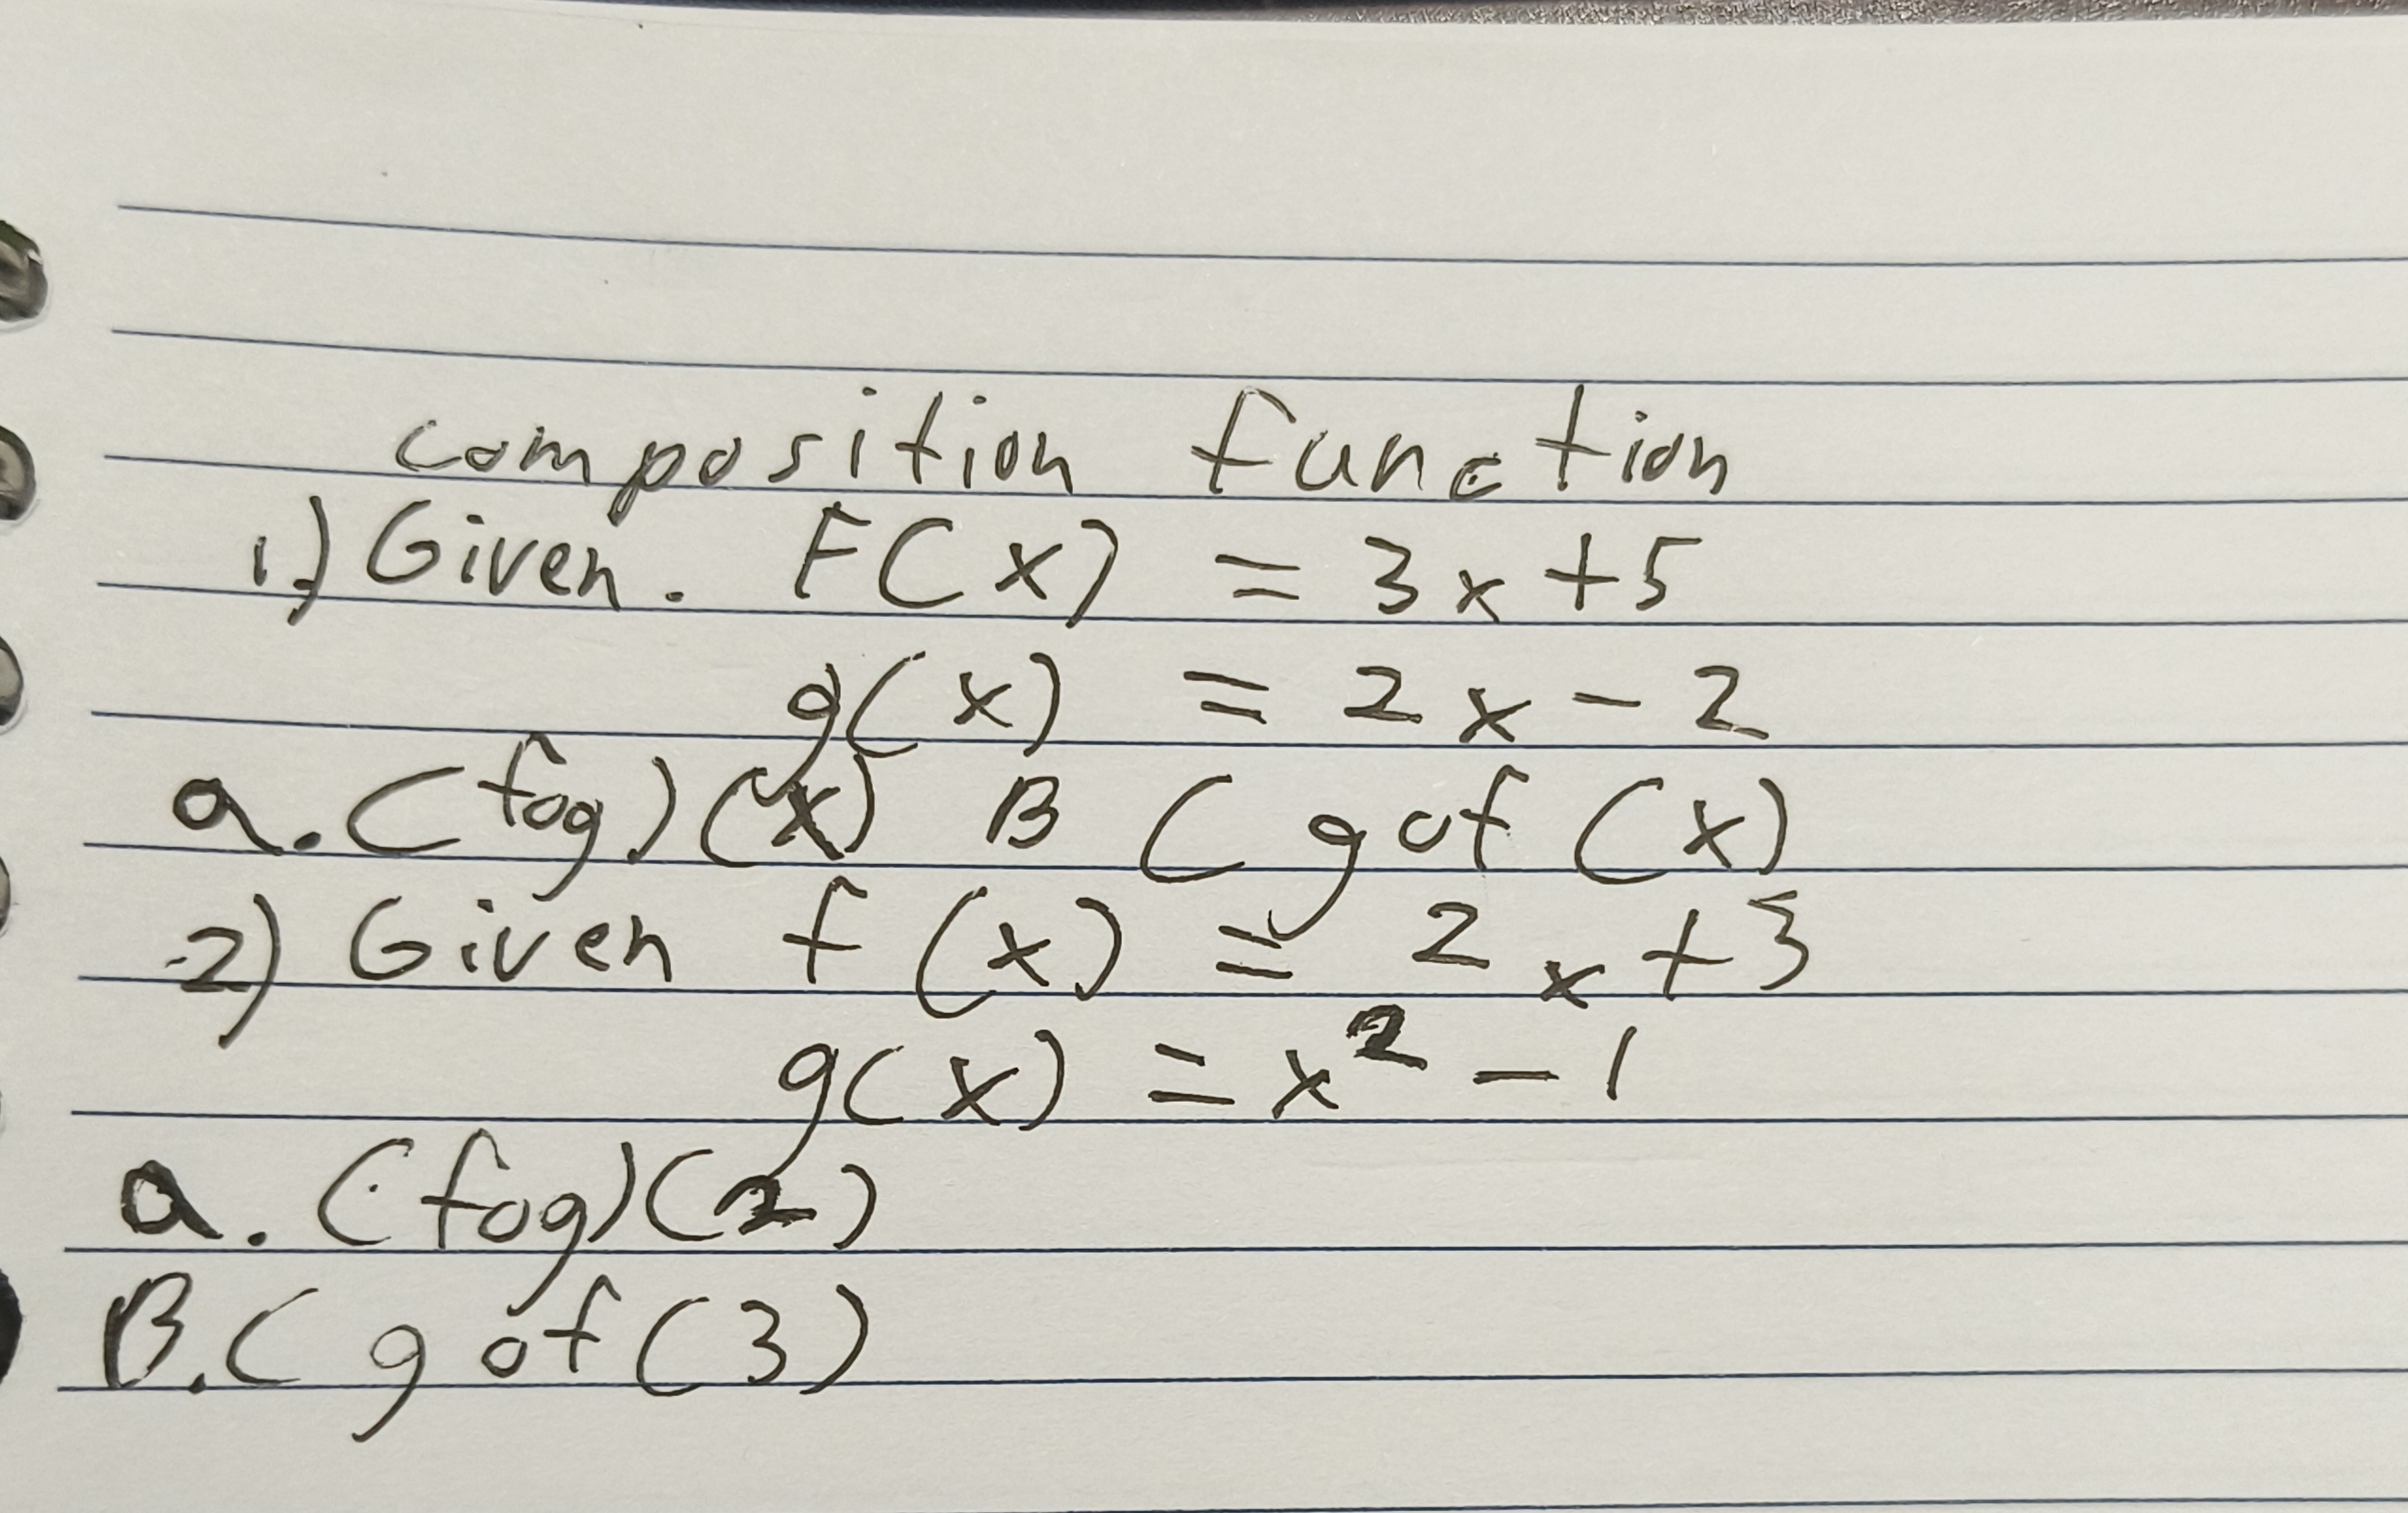 composition function
1.) Given. F(x) = 3x+5
g(x) = 2x-2
a. (fog)(x) B (gof (x)
2) Given f(x) = 2x+3
g(x) = x² - 1
a. (fog)(2)
B. (gof(3)